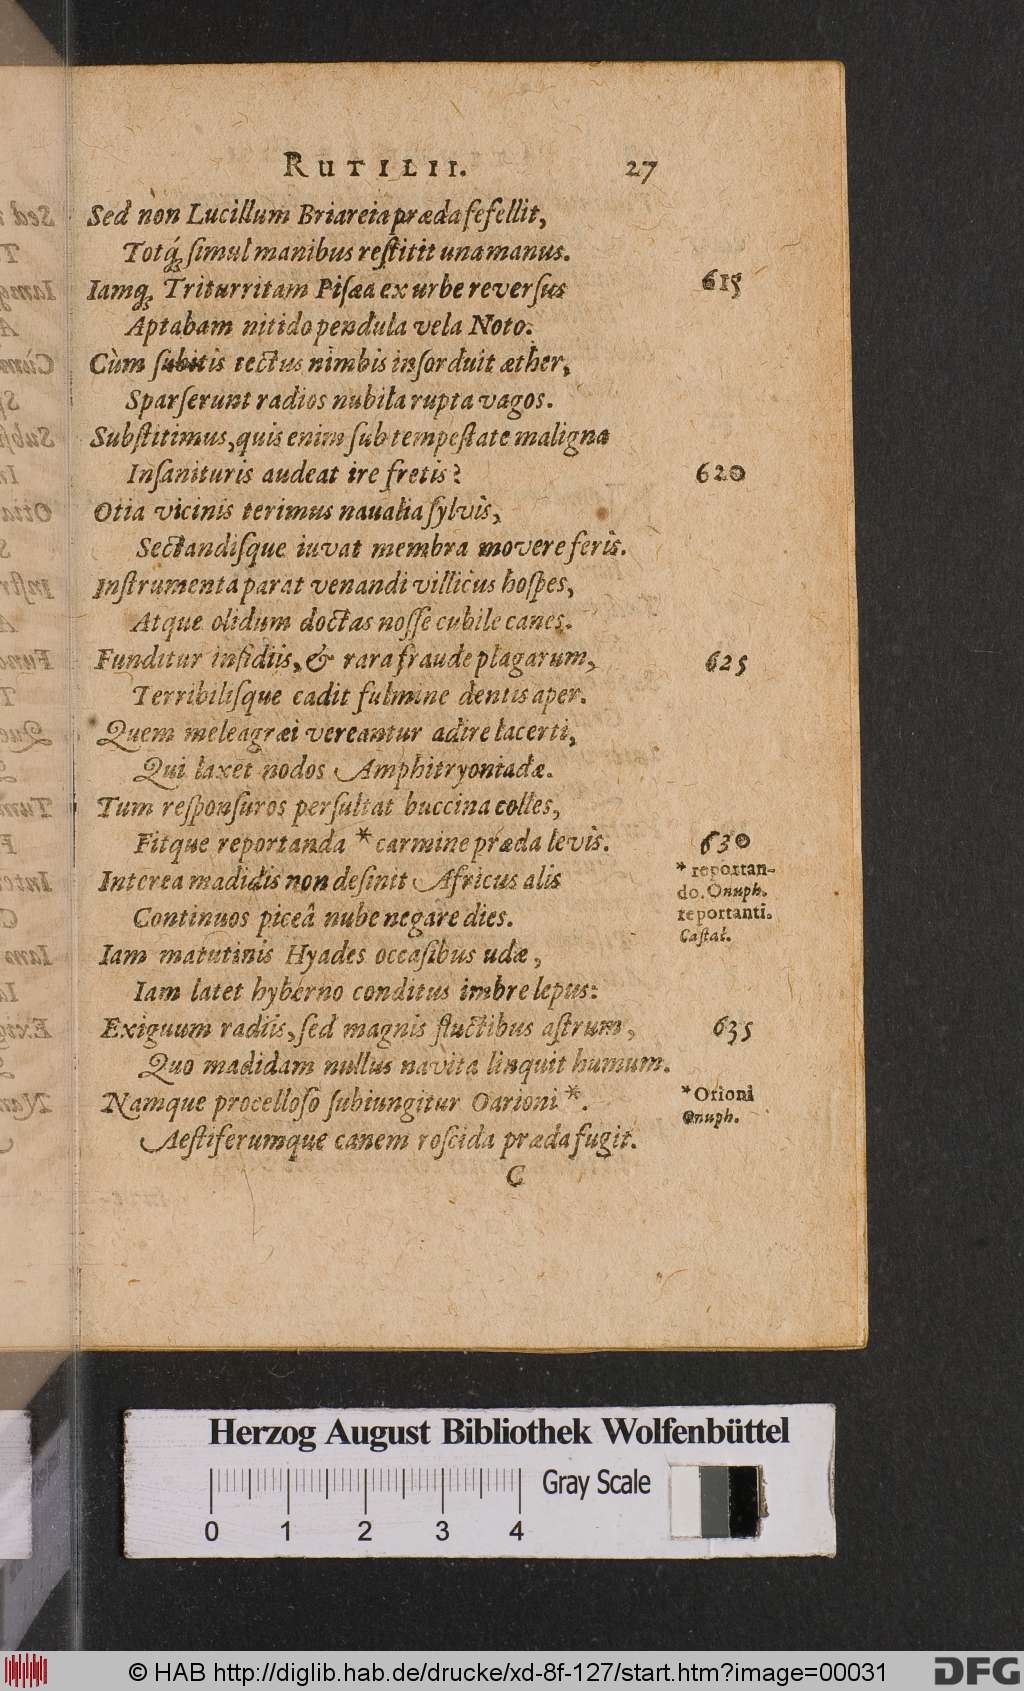 RUTILII. 27
Sed non Lucillum Briareia præda fefellit,
Totq́; simul manibus restitit una manus.
Iamq; Triturritam Pisæa ex urbe reversus 615
Aptabam nitido pendula vela Noto.
Cùm subitis tectus nimbis insorduit æther,
Sparserunt radios nubila rupta vagos.
Substitimus, quis enim sub tempestate maligna
Insanituris audeat ire fretis? 620
Otia vicinis terimus naualia sylvis,
Sectandisque iuvat membra movere feris.
Instrumenta parat venandi villicus hospes,
Atque olidum doctas nosse cubile canes.
Funditur insidiis, & rara fraude plagarum, 625
Terribilisque cadit fulmine dentis aper.
Quem meleagræi vereantur adire lacerti,
Qui laxet nodos Amphitryoniadæ.
Tum responsuros persultat buccina colles,
Fitque reportanda * carmine præda levis. 630
* reportan-
do. Onuph.
reportanti.
Castal.
Interea madidis non desinit Africus alis
Continuos piceâ nube negare dies.
Iam matutinis Hyades occasibus udæ,
Iam latet hyberno conditus imbre lepus:
Exiguum radiis, sed magnis fluctibus astrum, 635
Quo madidam nullus navita linquit humum.
Namque procelloso subiungitur Oarioni *.
* Orioni
Onuph.
Aestiferumque canem roscida præda fugit.
C
Herzog August Bibliothek Wolfenbüttel
Gray Scale
0 1 2 3 4
© HAB http://diglib.hab.de/drucke/xd-8f-127/start.htm?image=00031
DFG